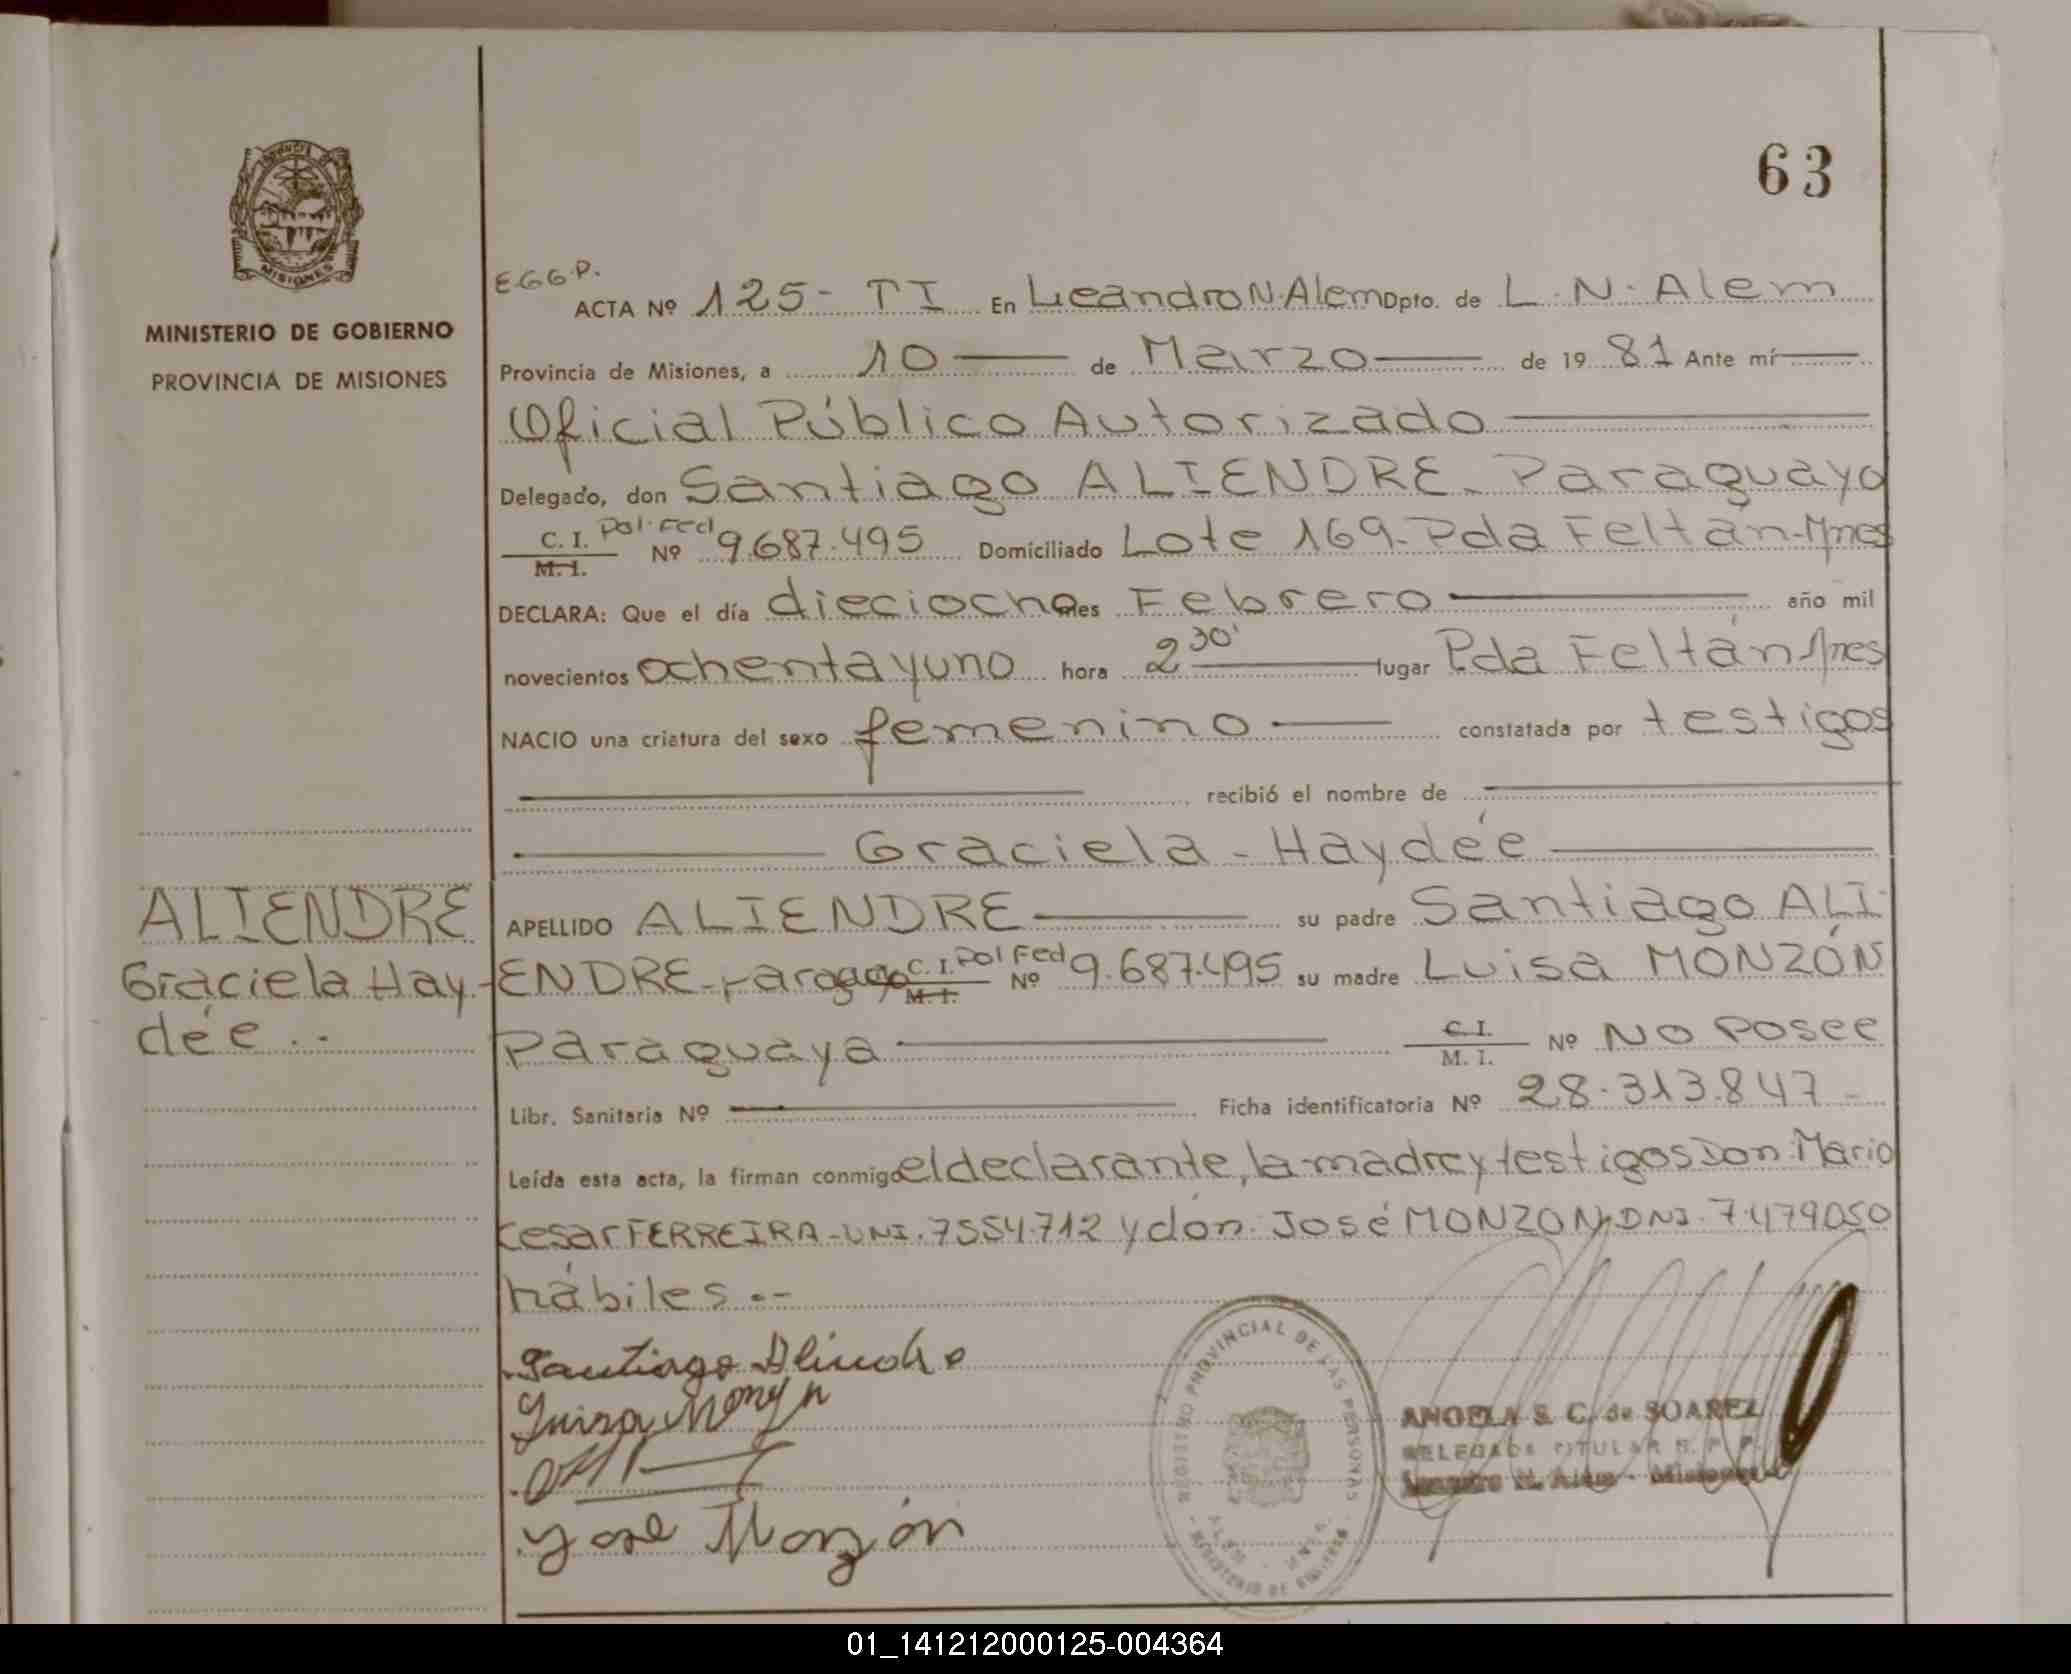 63
PROVINCIA DE
MISIONES
MINISTERIO DE GOBIERNO
PROVINCIA DE MISIONES
E.G.G.P.
ACTA Nº 125- TI En Leandro N. Alem Dpto. de L. N. Alem
Provincia de Misiones, a 10 de Marzo de 19 81 Ante mí
Oficial Público Autorizado
Delegado, don Santiago ALIENDRE- Paraguayo
C. I. Pol. Fed
M. I. Nº 9.687.495 Domiciliado Lote 169- Pda Feltán-Mnes
DECLARA: Que el día dieciocho mes Febrero año mil
novecientos ochenta y uno hora 2 30' lugar Pda Feltán Mnes
NACIO una criatura del sexo femenino constatada por testigos
recibió el nombre de
Graciela - Haydée
ALIENDRE
Graciela Hay-
dée..
APELLIDO ALIENDRE su padre Santiago ALI-
ENDRE- Paraguayo C. I. M. I. Pol Fed Nº 9.687.495 su madre Luisa MONZÓN
Paraguaya C. I. M. I. Nº NO Posee
Libr. Sanitaria Nº Ficha identificatoria Nº 28.313.847-
Leída esta acta, la firman conmigo el declarante, la madre y testigos Don Mario
Cesar FERREIRA-DNI. 7554.712 y don José MONZON, DNI. 7.479.050
hábiles.--
Santiago Aliendre
Luisa Monzón
José Monzón
REGISTRO PROVINCIAL DE LAS PERSONAS
MINISTERIO DE GOBIERNO
ALEM - MNES.
ANGELA S. C. de SOAREZ
DELEGADA TITULAR R. P. P.
Leandro N. Alem - Misiones
01_141212000125-004364